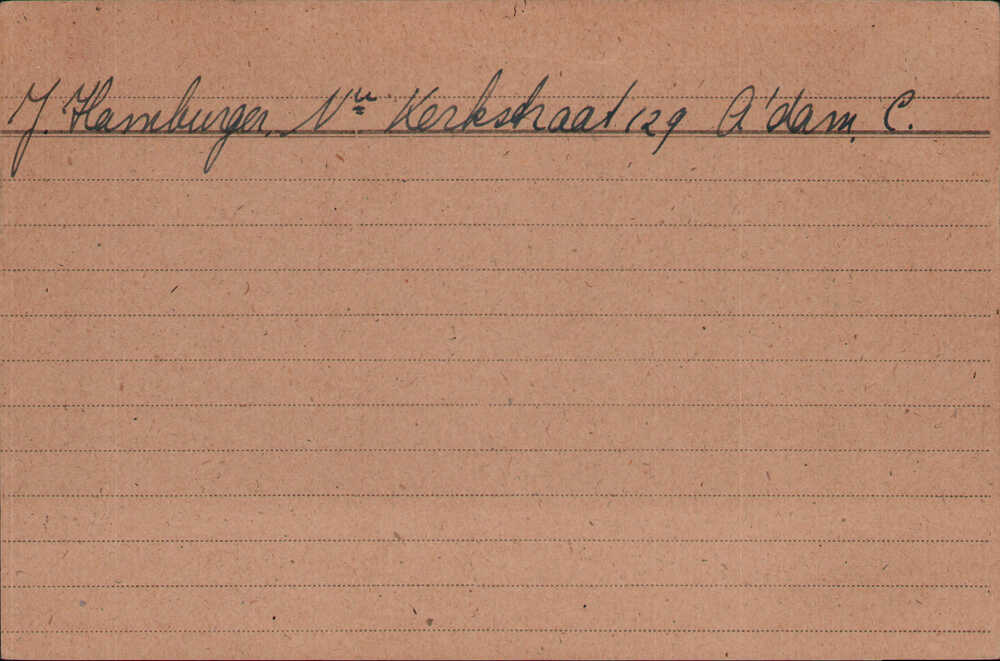 J. Hamburger, Nwe Kerkstraat 129 A'dam, C.